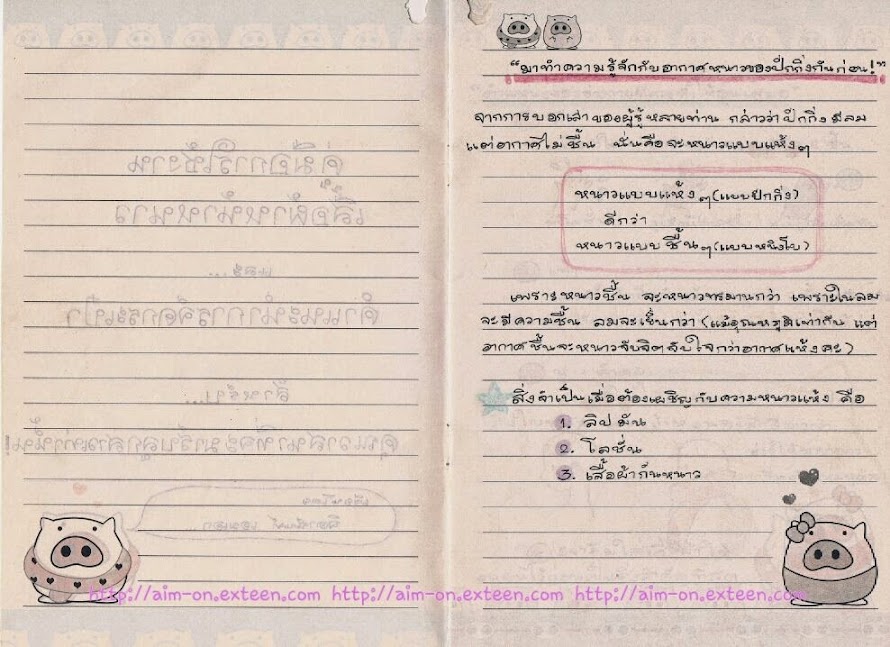 "มาทำความรู้จักกับอากาศหนาวของปักกิ่งกันก่อน!"
จากการบอกเล่าของผู้รู้หลายท่าน กล่าวว่าปักกิ่งมีลม
แต่อากาศไม่ชื้น นั่นคือจะหนาวแบบแห้งๆ
หนาวแบบแห้งๆ(แบบปักกิ่ง)
ดีกว่า
หนาวแบบชื้นๆ(แบบหนิงโบ)
เพราะหนาวชื้น จะหนาวทรมานกว่า เพราะในลม
จะมีความชื้น ลมจะเย็นกว่า (แม้อุณหภูมิเท่ากัน แต่
อากาศชื้นจะหนาวจับจิตจับใจกว่าอากาศแห้งคะ)
สิ่งจำเป็นเมื่อต้องเผชิญกับความหนาวแห้ง คือ
1. ลิปมัน
2. โลชั่น
3. เสื้อผ้ากันหนาว
http://aim-on.exteen.com http://aim-on.exteen.com http://aim-on.exteen.com